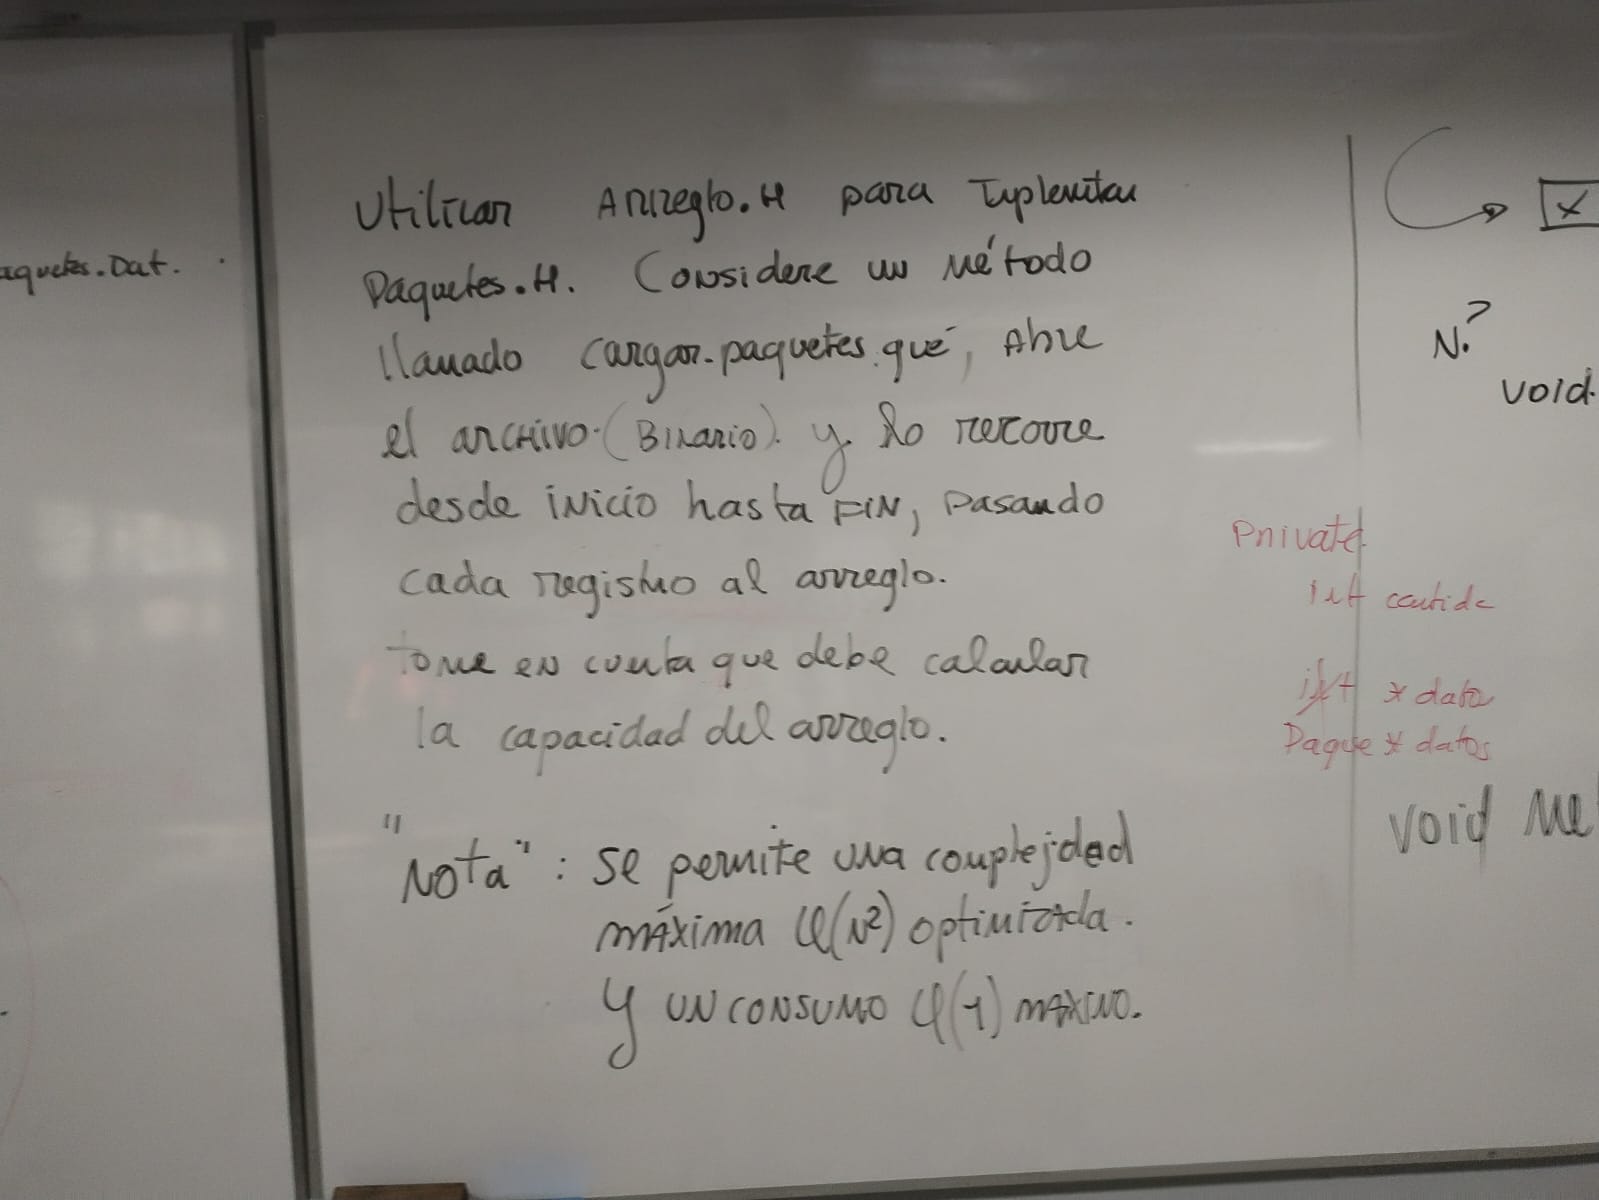 aquetes.Dat.
Utilizar Arreglo.H para Implemitar
Paquetes.H. Considere un método
llamado cargar-paquetes que, Abre
el archivo (Binario) y lo recorre
desde inicio hasta FIN, pasando
cada registro al arreglo.
tome en cuenta que debe calcular
la capacidad del arreglo.
"Nota": se permite una complejidad
máxima φ(N²) optimizada.
y un consumo φ(1) máximo.
X
N?
void
Private
int cantida
int * dato
Paque * datos
void Me